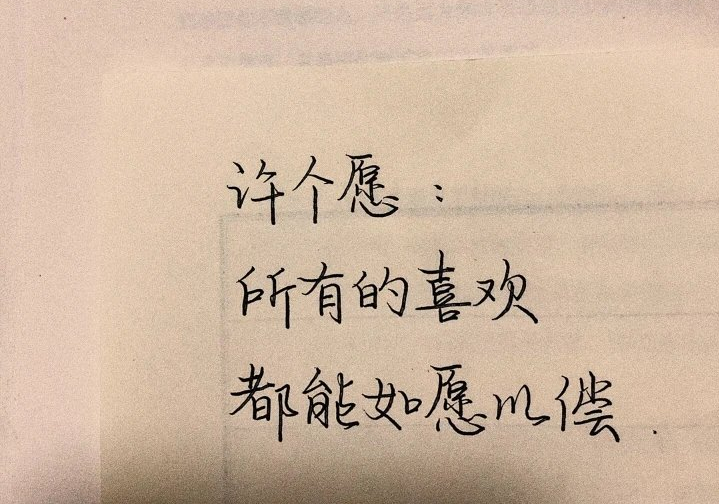 许个愿：
所有的喜欢
都能如愿以偿.